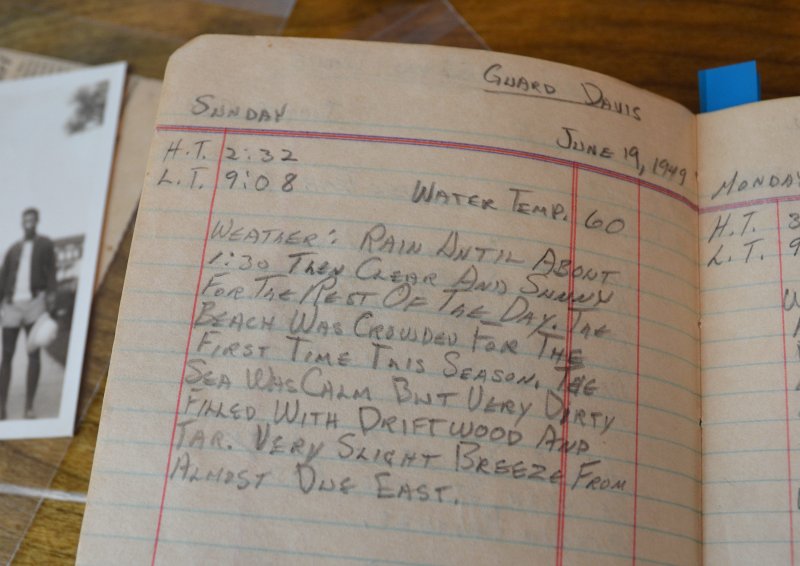 GUARD DAVIS
SUNDAY
JUNE 19, 1949
H.T. 2:32
L.T. 9:08
WATER TEMP. 60
WEATHER: RAIN UNTIL ABOUT
1:30 THEN CLEAR AND SUNNY
FOR THE REST OF THE DAY. THE
BEACH WAS CROWDED FOR THE
FIRST TIME THIS SEASON. THE
SEA WAS CALM BUT VERY DIRTY
FILLED WITH DRIFTWOOD AND
TAR. VERY SLIGHT BREEZE FROM
ALMOST DUE EAST.
MONDAY
H.T. 3
L.T. 9